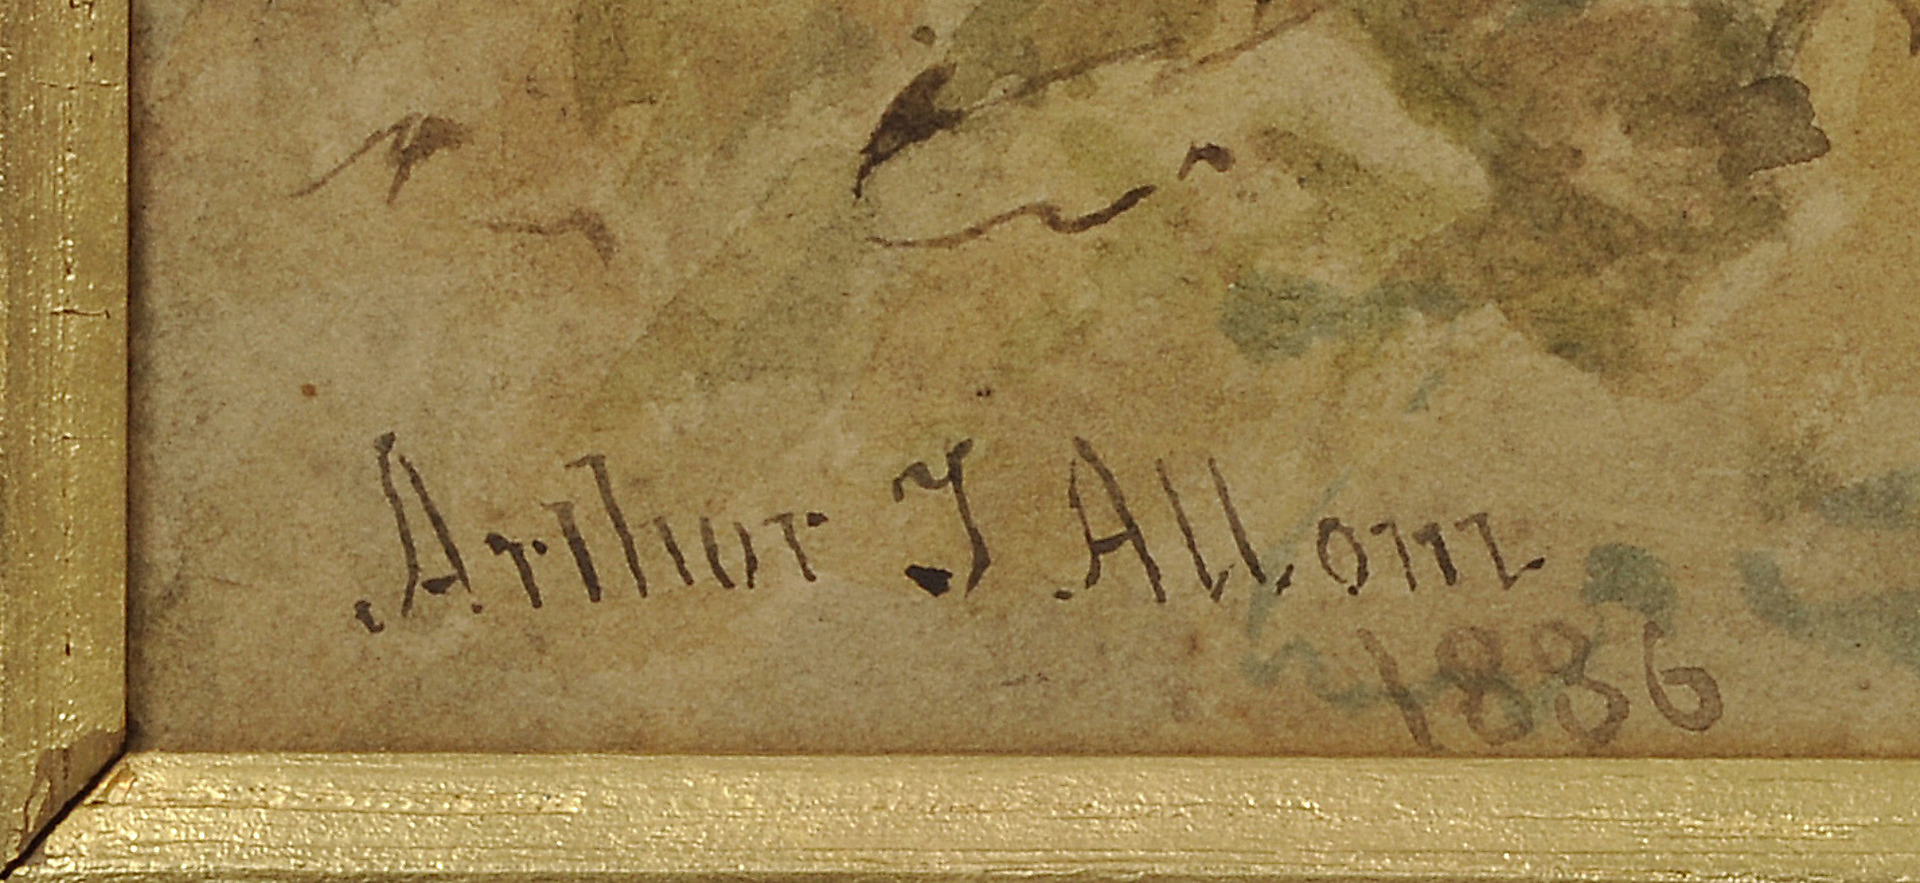 Arthur J Allom
1886